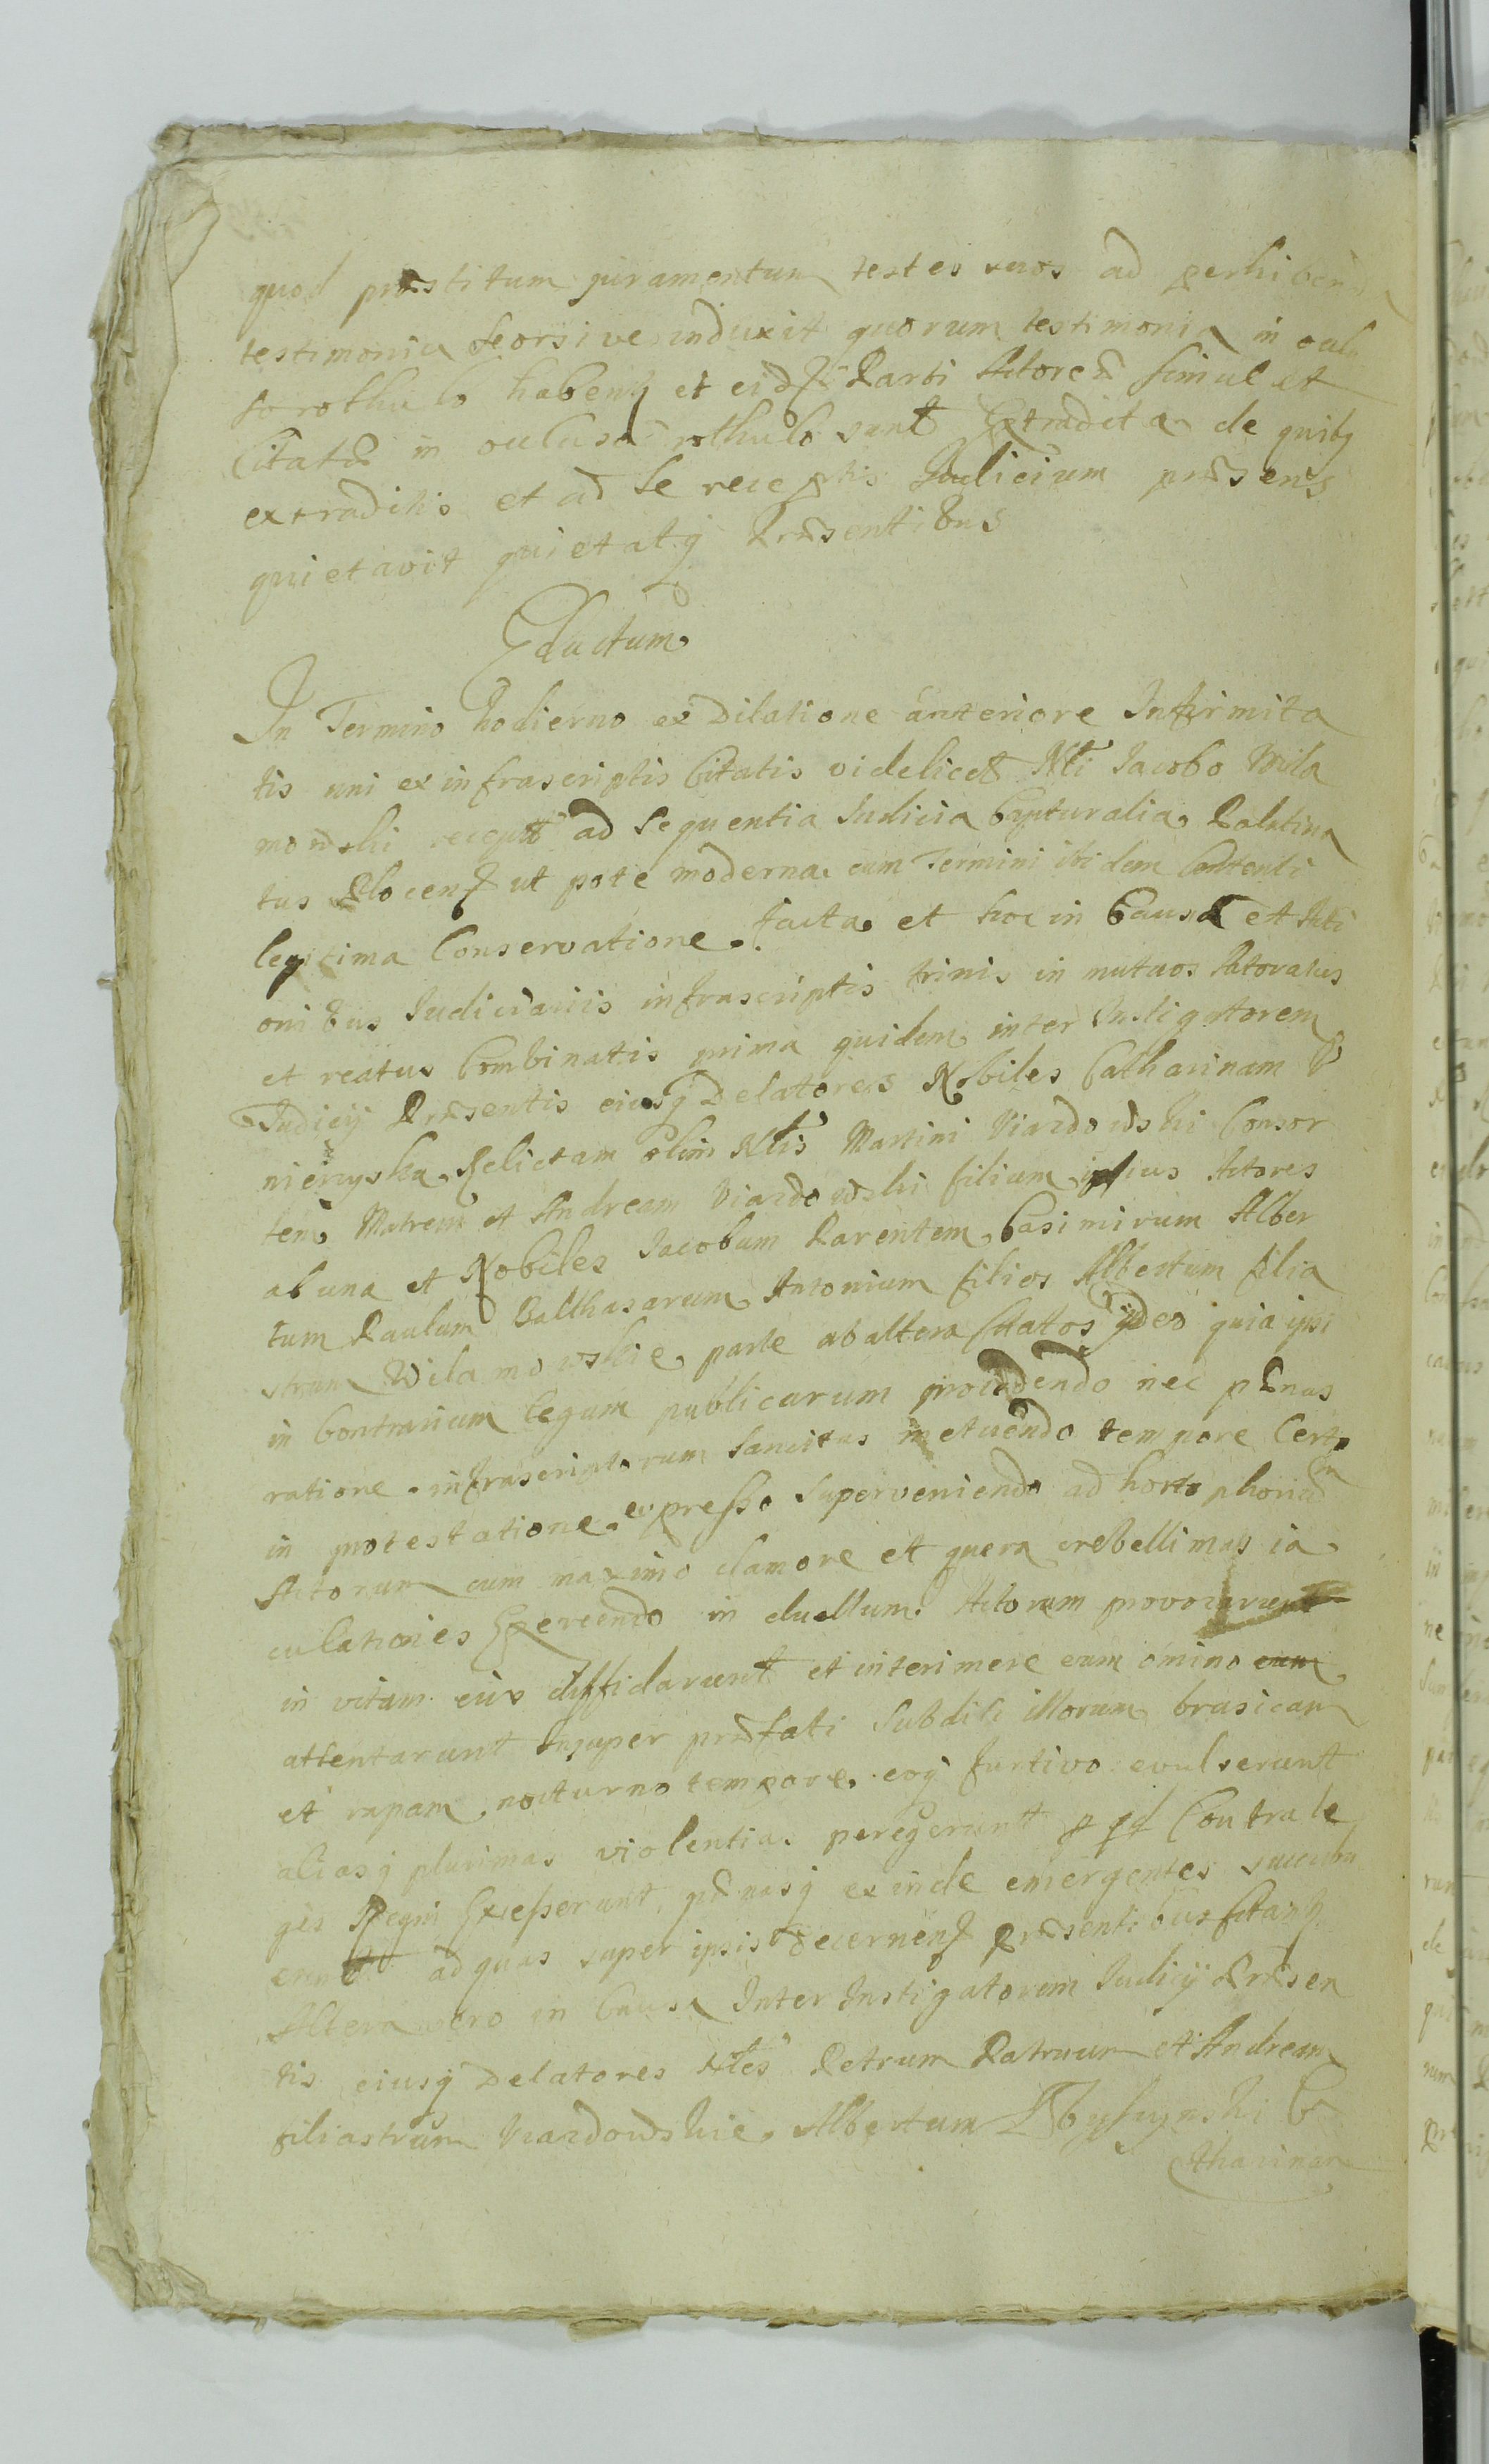 quod præstitum juramentum testes suos ad perhibenda
testimonia seorsive induxit quorum testimonia in oculu
so rothulo habentq et eidẽ Parti Actoreæ simul et
Citatæ in oculuso rothulo sunt Extradita de quibq
extraditis et ad se receptis Judicium præsens
quietavit quietatq Præsentibus
Eductum
In Termino hodierno ex Dilatione anteriore Infirmita
tis uni ex infrascriptis Citatis videlicet Nbli Jacobo Wila
mowski recepta ad sequentia Judicia Capturalia Palatina
tus Plocens ut pote moderna cum Termini ibidem Contenti
legitima Conservatione facta et hoc in Causa et Acti
onibus Judiciariis infrascriptis trinis in mutuos Actoratus
et reatus Combinatis prima quidem inter Instigatorem
Judicij Præsentis eiusq Delatores Nobiles Catharinam
Relictam olim Nblis Martini Viardowski Consor
tem Matrem et Andream Viardowski filium ipsius Actores
ab una et Nobiles Jacobum Parentem Casimirum Alber
tum Paulum Balthasarum Antonium filios Albertum filia
strum Wilamowskie parte ab altera Citatos ideo quia ipsi
in Contrarium legum publicarum procedendo nec pænas
ratione infrascriptorum sancitas metuendo tempore Certo
in protestatione expresso superveniendo ad hortos
Actorum cum maximo clamore et crebellimas ia
culationes Exercendo in duellum Actorum provocarunt
in vitam eius diffidarunt et interimere eum omino eum
attentarunt Insuper præfati Subditi illorum brasicam
et rapam nocturno tempore eoq furtivo evulserunt
aliasq plurimas violentias peregerunt Contra le
ges Regni Excesserunt pænasq exinde emergentes succubu
erunt ad quas super ipsis decernens præsentibus Citantq
Altera vero in Causa Inter Instigatorem Judicij Præsen
tis eiusq Delatores Nbles Petrum Patruum et Andream
filiastrum Viardowskie Albertum Ca
tharinam